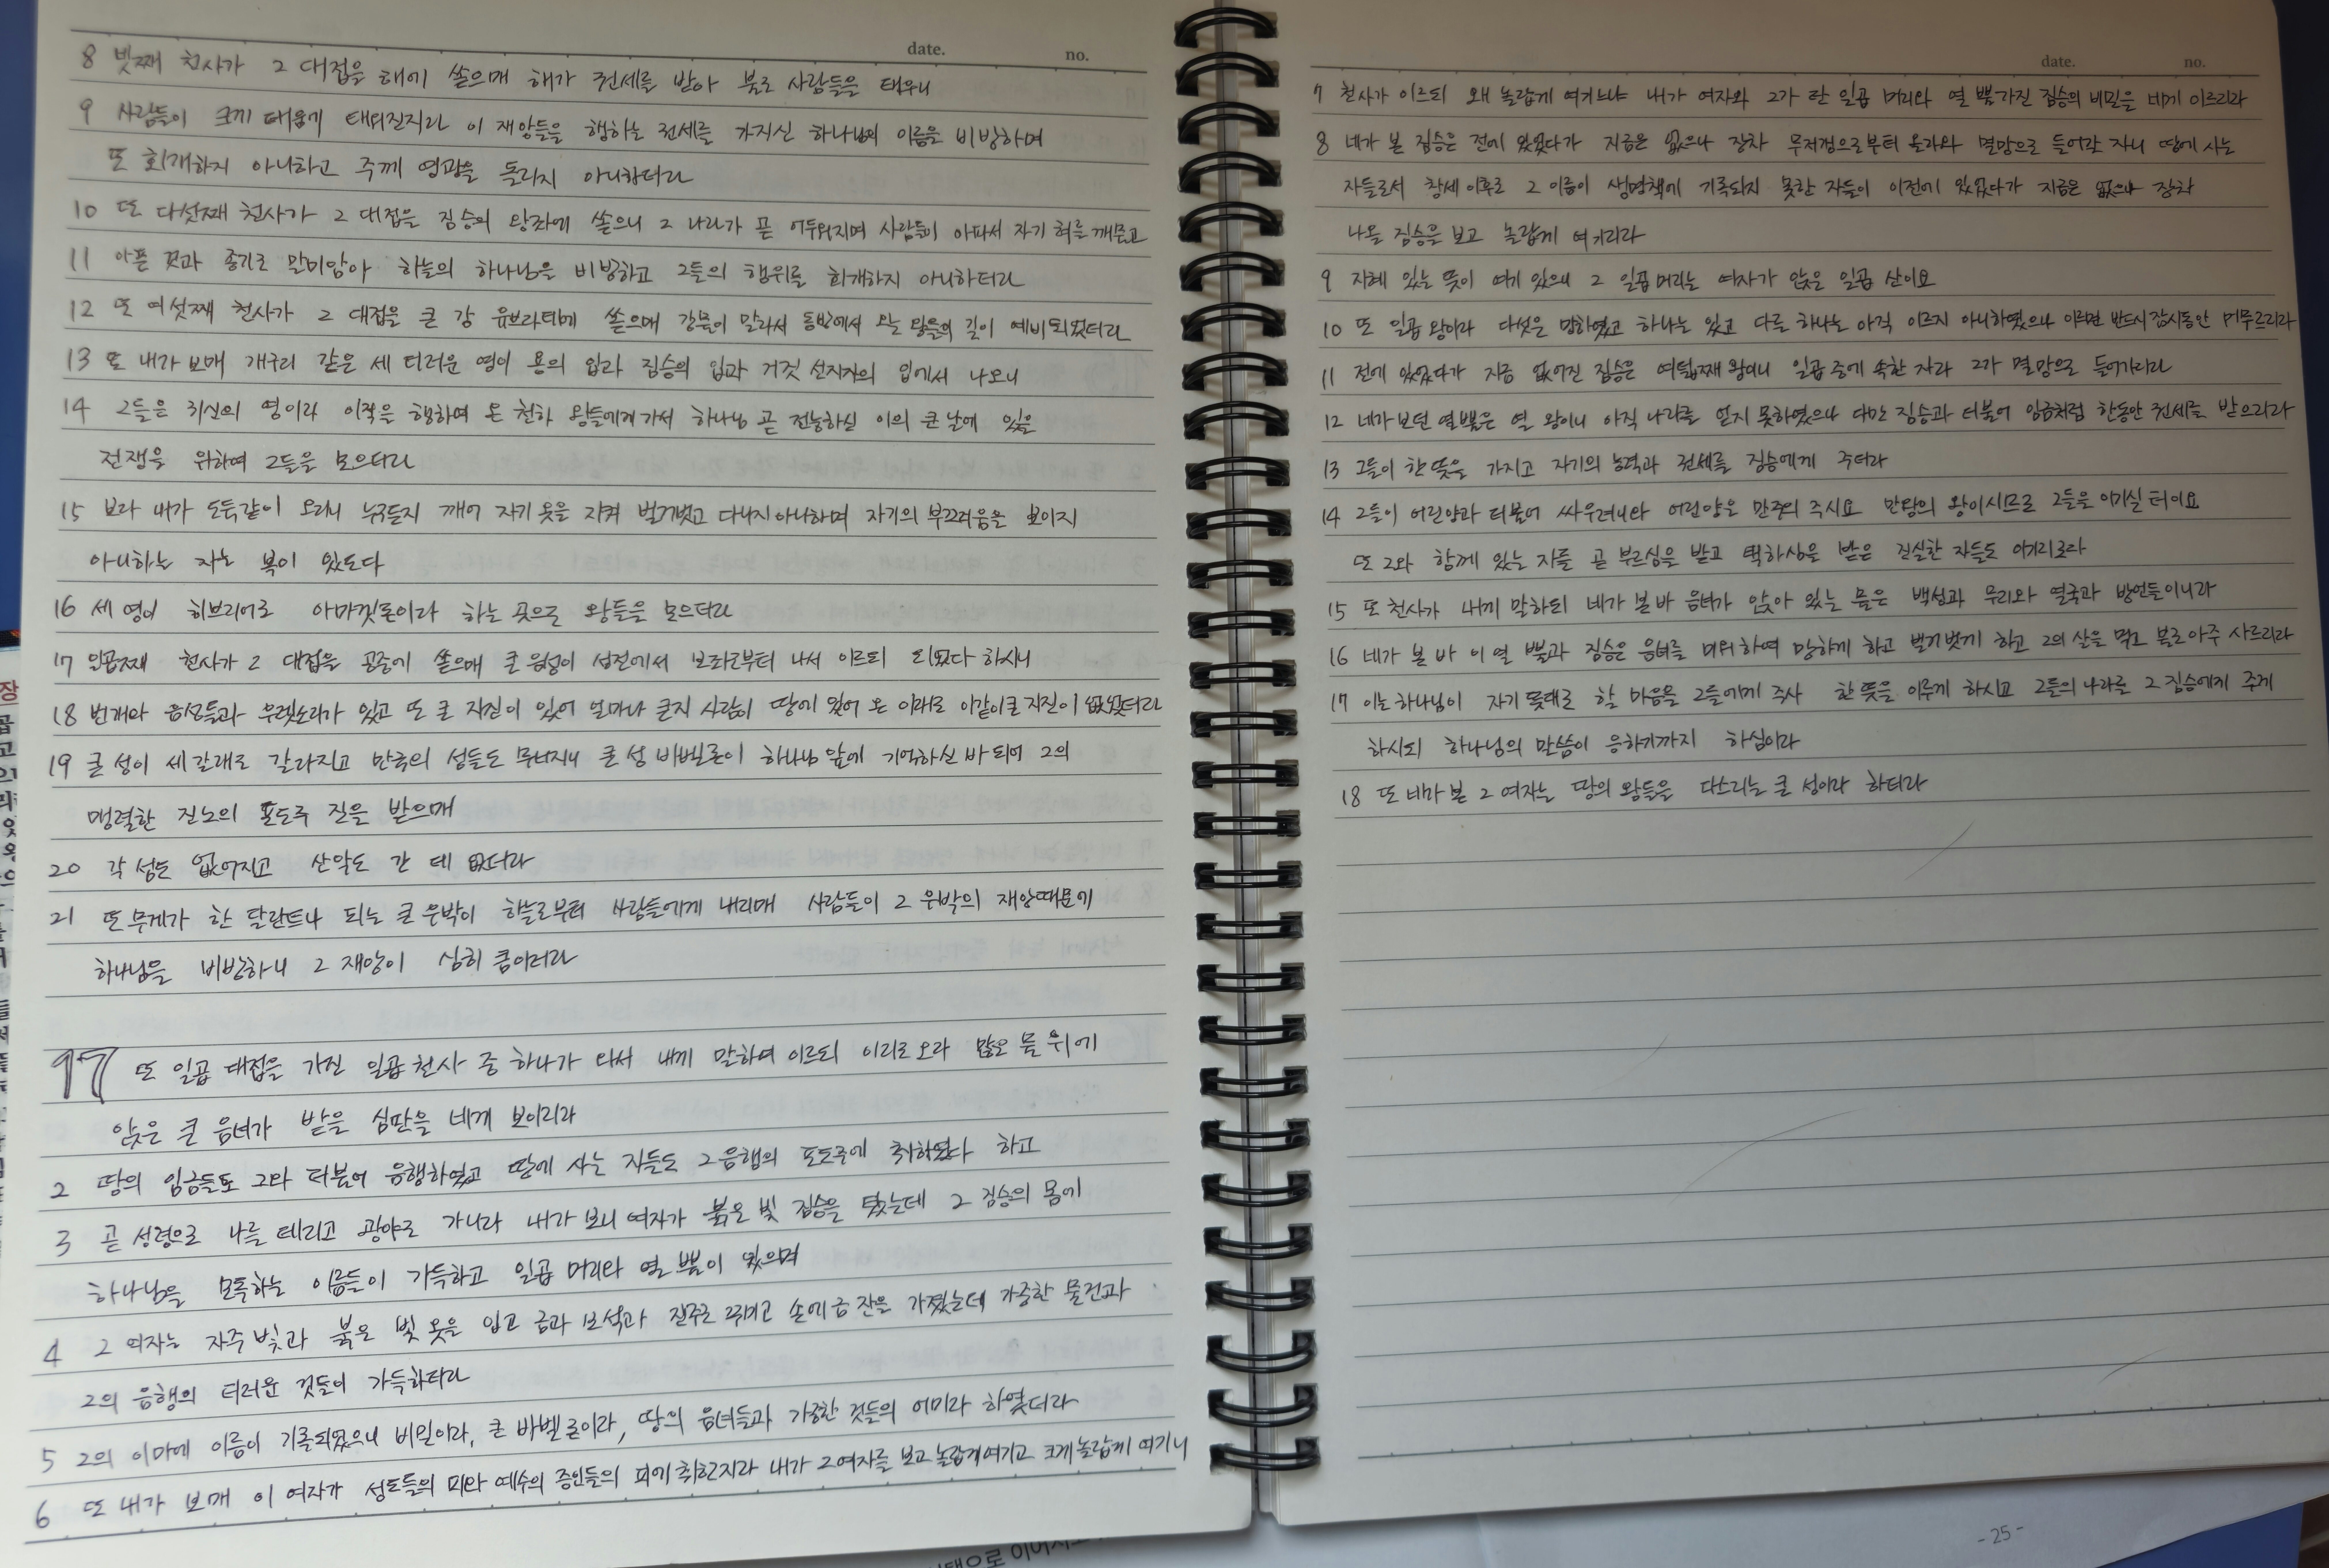 date. no.
8 넷째 천사가 그 대접을 해에 쏟으매 해가 권세를 받아 불로 사람들을 태우니
9 사람들이 크게 태움에 태워진지라 이 재앙들을 행하는 권세를 가지신 하나님의 이름을 비방하며
또 회개하지 아니하고 주께 영광을 돌리지 아니하더라
10 또 다섯째 천사가 그 대접을 짐승의 왕좌에 쏟으니 그 나라가 곧 어두워지며 사람들이 아파서 자기 혀를 깨물고
11 아픈 것과 종기로 말미암아 하늘의 하나님을 비방하고 그들의 행위를 회개하지 아니하더라
12 또 여섯째 천사가 그 대접을 큰 강 유브라데에 쏟으매 강물이 말라서 동방에서 오는 왕들의 길이 예비되었더라
13 또 내가 보매 개구리 같은 세 더러운 영이 용의 입과 짐승의 입과 거짓 선지자의 입에서 나오니
14 그들은 귀신의 영이라 이적을 행하여 온 천하 왕들에게 가서 하나님 곧 전능하신 이의 큰 날에 있을
전쟁을 위하여 그들을 모으더라
15 보라 내가 도둑같이 오리니 누구든지 깨어 자기 옷을 지켜 벌거벗고 다니지 아니하며 자기의 부끄러움을 보이지
아니하는 자는 복이 있도다
16 세 영이 히브리어로 아마겟돈이라 하는 곳으로 왕들을 모으더라
17 일곱째 천사가 그 대접을 공중에 쏟으매 큰 음성이 성전에서 보좌로부터 나서 이르되 되었다 하시니
18 번개와 음성들과 우렛소리가 있고 또 큰 지진이 있어 얼마나 큰지 사람이 땅에 있어 온 이래로 이같이 큰 지진이 없었더라
19 큰 성이 세 갈래로 갈라지고 만국의 성들도 무너지니 큰 성 바벨론이 하나님 앞에 기억하신 바 되어 그의
맹렬한 진노의 포도주 잔을 받으매
20 각 섬도 없어지고 산악도 간 데 없더라
21 또 무게가 한 달란트나 되는 큰 우박이 하늘로부터 사람들에게 내리매 사람들이 그 우박의 재앙때문에
하나님을 비방하니 그 재앙이 심히 큼이더라
17 또 일곱 대접을 가진 일곱 천사 중 하나가 와서 내게 말하여 이르되 이리로 오라 많은 물 위에
앉은 큰 음녀가 받을 심판을 네게 보이리라
2 땅의 임금들도 그와 더불어 음행하였고 땅에 사는 자들도 그 음행의 포도주에 취하였다 하고
3 곧 성령으로 나를 데리고 광야로 가니라 내가 보니 여자가 붉은 빛 짐승을 탔는데 그 짐승의 몸에
하나님을 모독하는 이름들이 가득하고 일곱 머리와 열 뿔이 있으며
4 그 여자는 자주 빛과 붉은 빛 옷을 입고 금과 보석과 진주로 꾸미고 손에 금 잔을 가졌는데 가증한 물건과
그의 음행의 더러운 것들이 가득하더라
5 그의 이마에 이름이 기록되었으니 비밀이라, 큰 바벨론이라, 땅의 음녀들과 가증한 것들의 어미라 하였더라
6 또 내가 보매 이 여자가 성도들의 피와 예수의 증인들의 피에 취한지라 내가 그 여자를 보고 놀랍게 여기고 크게 놀랍게 여기니
date. no.
7 천사가 이르되 왜 놀랍게 여기느냐 내가 여자와 그가 탄 일곱 머리와 열 뿔 가진 짐승의 비밀을 네게 이르리라
8 네가 본 짐승은 전에 있었다가 지금은 없으나 장차 무저갱으로부터 올라와 멸망으로 들어갈 자니 땅에 사는
자들로서 창세 이후로 그 이름이 생명책에 기록되지 못한 자들이 이전에 있었다가 지금은 없으나 장차
나올 짐승을 보고 놀랍게 여기리라
9 지혜 있는 뜻이 여기 있으니 그 일곱 머리는 여자가 앉은 일곱 산이요
10 또 일곱 왕이라 다섯은 망하였고 하나는 있고 다른 하나는 아직 이르지 아니하였으나 이르면 반드시 잠시동안 머무르리라
11 전에 있었다가 지금 없어진 짐승은 여덟째 왕이니 일곱 중에 속한 자라 그가 멸망으로 들어가리라
12 네가 보던 열 뿔은 열 왕이니 아직 나라를 얻지 못하였으나 다만 짐승과 더불어 임금처럼 한동안 권세를 받으리라
13 그들이 한 뜻을 가지고 자기의 능력과 권세를 짐승에게 주더라
14 그들이 어린양과 더불어 싸우려니와 어린양은 만주의 주시요 만왕의 왕이시므로 그들을 이기실 터이요
또 그와 함께 있는 자들 곧 부르심을 받고 택하심을 받은 진실한 자들도 이기리로다
15 또 천사가 내게 말하되 네가 본 바 음녀가 앉아 있는 물은 백성과 무리와 열국과 방언들이니라
16 네가 본 바 이 열 뿔과 짐승은 음녀를 미워하여 망하게 하고 벌거벗게 하고 그의 살을 먹고 불로 아주 사르리라
17 이는 하나님이 자기 뜻대로 할 마음을 그들에게 주사 한 뜻을 이루게 하시고 그들의 나라를 그 짐승에게 주게
하시되 하나님의 말씀이 응하기까지 하심이라
18 또 네가 본 그 여자는 땅의 왕들을 다스리는 큰 성이라 하더라
- 25 -